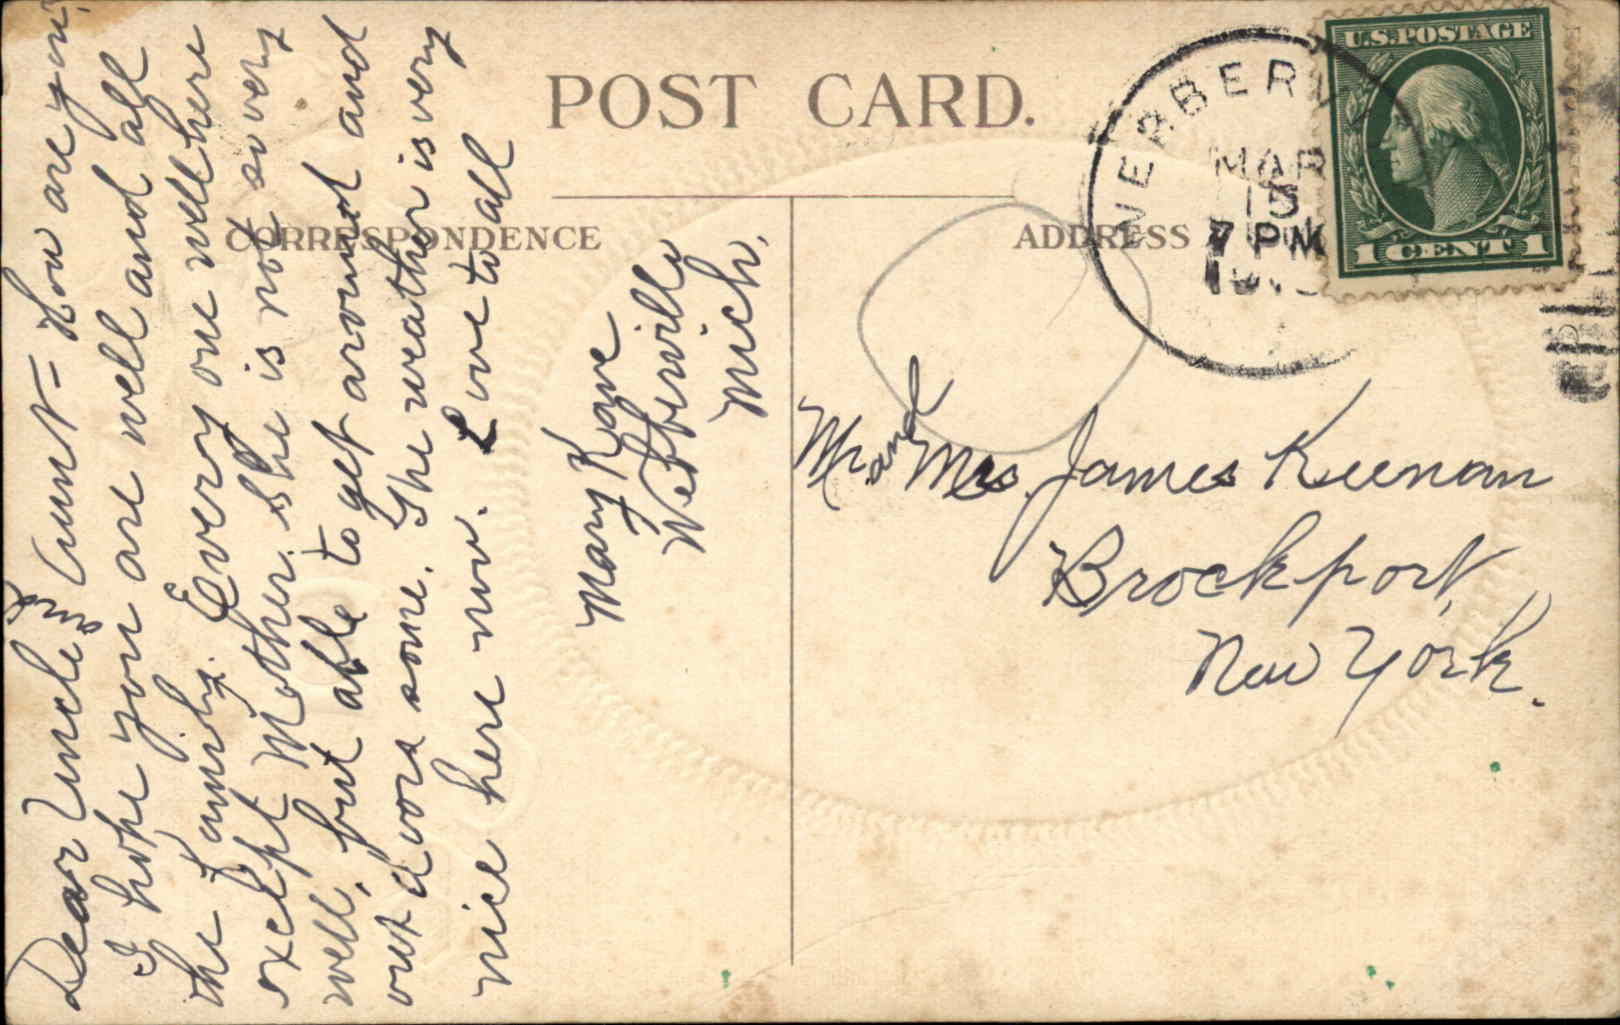 POST CARD.
CORRESPONDENCE
ADDRESS
Dear Uncle & Aunt = How are you?
I hope you are well and all
the family. Every one well here
except Mother. She is not so very
well, but able to get around and
out doors some. The weather is very
nice here now. Love to all
Mary Kane
Webberville
Mich.
Mr. and Mrs. James Keenan
Brockport,
New York.
WEBBERV
MAR
15
7 PM
U.S. POSTAGE
1 CENT 1